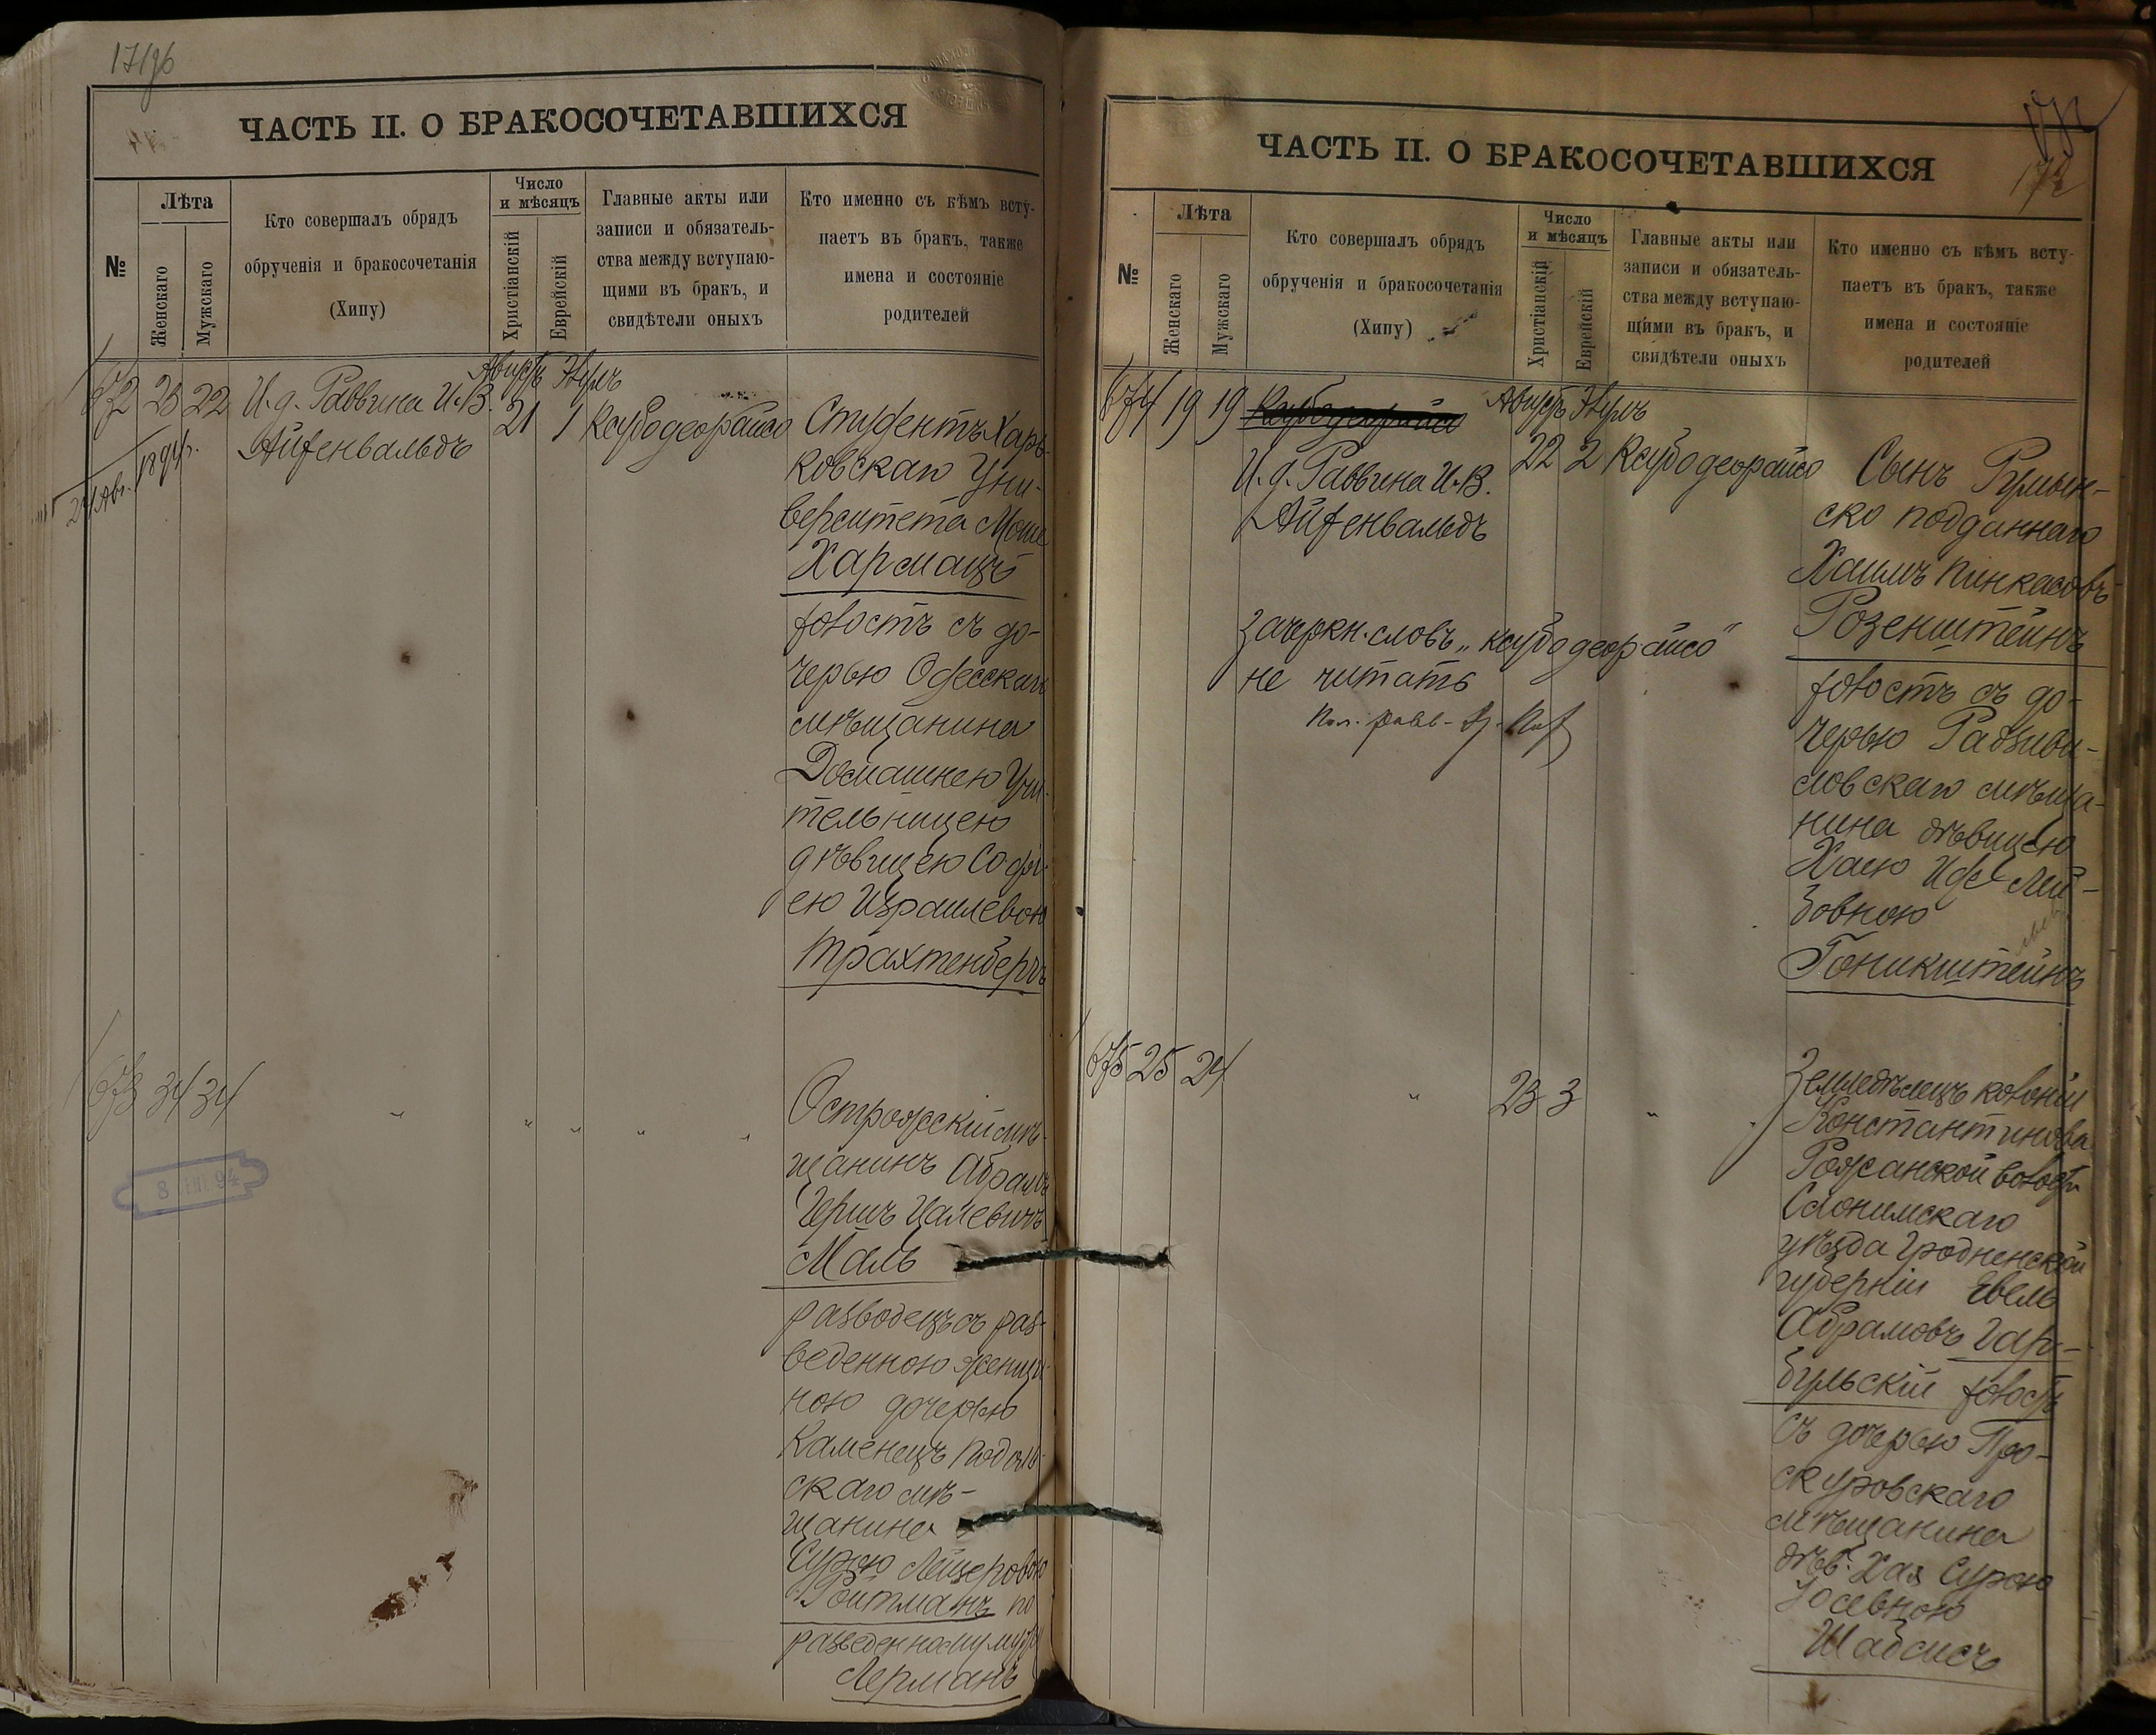 ЧАСТЬ II. О БРАКОСОЧЕТАВШИХСЯ
№
Лѣта
Женскаго
Мужскаго
Кто совершалъ обрядъ
обрученія и бракосочетанія
(Хипу)
Число
и мѣсяцъ
Христіанскій
Еврейскій
Главные акты или
записи и обязатель-
ства между вступаю-
щими въ бракъ, и
свидѣтели оныхъ
Кто именно съ кѣмъ всту-
паетъ въ бракъ, также
имена и состояніе
родителей
Августъ
672 23 22 И. д. Раввина И. В. 21 1 Ксубодеорайсо
Айзенвальдъ
Студентъ Харь-
ковскаго Уни-
верситета
Хармацъ
холостъ съ до-
черью Одесскаго
мѣщанина
Домашнею Учи-
тельницею
дѣвицею Софі-
ею Израилевою
Трахтенбергъ
673 34 34 " " " "
Острожскій мѣ-
щанинъ Абрамъ
Гершъ
Маль
разводецъ съ раз-
веденною женщи-
ною дочерью
Каменецъ Подоль-
скаго мѣ-
щанина
Сурою Лейзеровою
Ройтманъ по
разведенному мужу
Лерманъ
ЧАСТЬ II. О БРАКОСОЧЕТАВШИХСЯ
172
№
Лѣта
Женскаго
Мужскаго
Кто совершалъ обрядъ
обрученія и бракосочетанія
(Хипу)
Число
и мѣсяцъ
Христіанскій
Еврейскій
Главные акты или
записи и обязатель-
ства между вступаю-
щими въ бракъ, и
свидѣтели оныхъ
Кто именно съ кѣмъ всту-
паетъ въ бракъ, также
имена и состояніе
родителей
Августъ
674 19 19 Ксубодеорайсо 22 2 Ксубодеорайсо
И. д. Раввина И. В.
Айзенвальдъ
зачеркн. словъ „ксубодеорайсо"
не читать
Сынъ Румын-
ско подданнаго
Хаимъ Пинкасовъ
Розенштейнъ
холостъ съ до-
черью Радзиви-
ловскаго мѣща-
нина дѣвицею
Хаею
бовною
Гоникштейнъ
675 25 24 " 23 3 "
Земледѣлецъ колоніи
Константинова
Рожанской волости
Слонимскаго
уѣзда Гродненской
губерніи
Абрамовъ Гар-
бульскій холостъ
съ дочерью Про-
скуровскаго
мѣщанина
дѣв. Хая Сурою
Іосевною
Шабсисъ